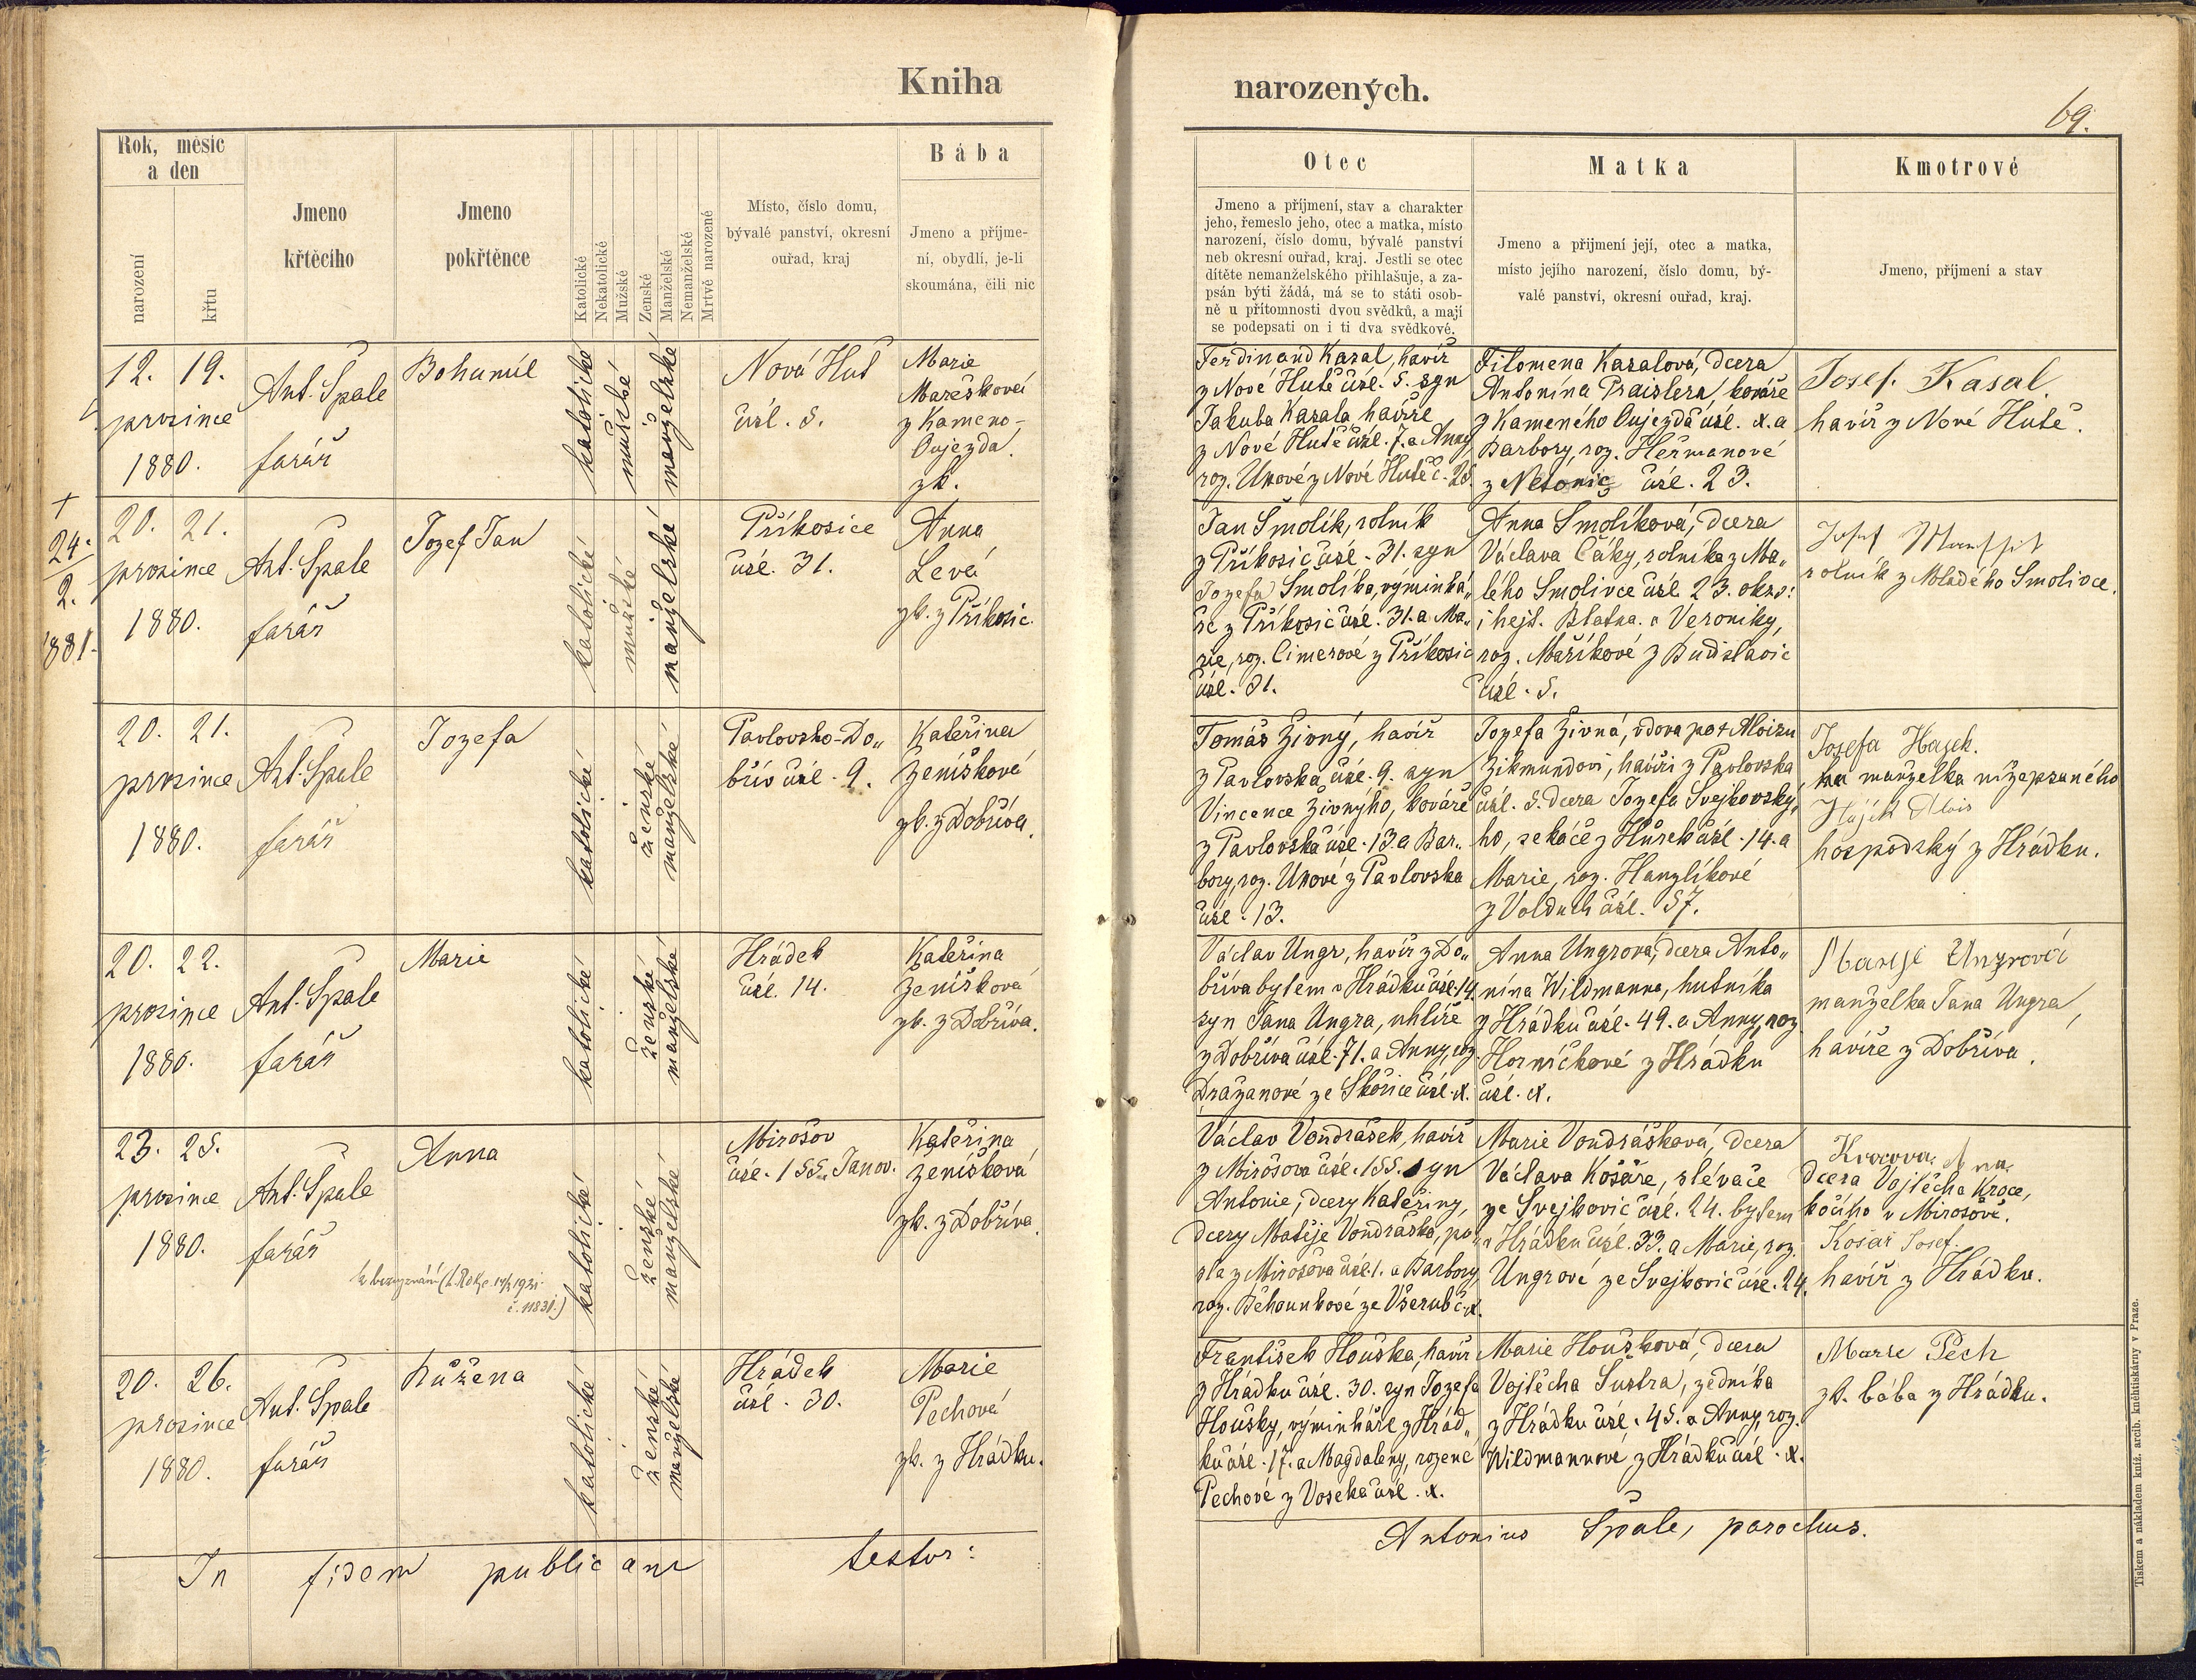 Kniha
narozených.
69.
Rok, měsíc
a den
narození
křtu
Jmeno
křtěcího
Jmeno
pokřtěnce
Katolické
Nekatolické
Mužské
Ženské
Manželské
Nemanželské
Mrtvě narozené
Místo, číslo domu,
bývalé panství, okresní
ouřad, kraj
Bába
Jmeno a příjme-
ní, obydlí, je-li
skoumána, čili nic
Otec
Jmeno a příjmení, stav a charakter
jeho, řemeslo jeho, otec a matka, místo
narození, číslo domu, bývalé panství
neb okresní ouřad, kraj. Jestli se otec
dítěte nemanželského přihlašuje, a za-
psán býti žádá, má se to státi osob-
ně u přítomnosti dvou svědků, a mají
se podepsati on i ti dva svědkové.
Matka
Jmeno a přijmení její, otec a matka,
místo jejího narození, číslo domu, bý-
valé panství, okresní ouřad, kraj.
Kmotrové
Jmeno, příjmení a stav
12. 19.
prosince
1880.
Ant. Špale
farář
Bohumil
katolické
mužské
manželské
Nová Huť
čísl. 5.
Marie
Marešková
z Kameno-
Oujezda.
zk.
Ferdinand Kasal, havíř
z Nové Hutě čísl. 5. syn
Jakuba Kasala havíře
z Nové Hutě čísl. 7. a Anny,
roz. Ukové z Nové Hutě č. 25.
Filomena Kasalová, dcera
Antonína Praislera, kováře
z Kameného Oujezda čísl. x. a
Barbory, roz. Heřmanové
z Netonic čísl. 23.
Josef Kasal
havíř z Nové Hutě.
+
24.
2.
1881.
20. 21.
prosince
1880.
Ant. Špale
farář
Jozef Jan
katolické
mužské
manželské
Příkosice
čísl. 31.
Anna
Levá
zk. z Příkosic.
Jan Smolík, rolník
z Příkosic čísl. 31. syn
Jozefa Smolíka, výminká„
ře z Příkosic čísl. 31. a Ma„
rie, roz. Cimerové z Příkosic
čísl. 31.
Anna Smolíková, dcera
Václava Čáky, rolníka z Ma„
lého Smolivce čísl. 23. okrs.
i hejt. Blatna. a Veroniky,
roz. Maříkové z Budislavic
čísl. 5.
Josef
rolník z Mladého Smolivce.
20. 21.
prosince
1880.
Ant. Špale
farář
Jozefa
katolické
ženské
manželské
Pavlovsko-Do„
břív čísl. 9.
Kateřina
Zeníšková
zk. z Dobříva.
Tomáš Živný, havíř
z Pavlovska čísl. 9. syn
Vincence Živnýho, kováře
z Pavlovska čísl. 13. a Bar„
bory, roz. Ukové z Pavlovska
čísl. 13.
Jozefa Živná, vdova po + Aloisu
Zikmundovi, havíři z Pavlovska
čísl. 5. dcera Jozefa Svejkovský„
ho, sekáče z Hůrek čísl. 14. a
Marie, roz. Hanzlíkové
z Volduch čísl. 57.
Josefa Hajek.
ka manželka nížepsaného
Hájek Alois
hospodský z Hrádku.
20. 22.
prosince
1880.
Ant. Špale
farář
Marie
katolické
ženské
manželské
Hrádek
čísl. 14.
Kateřina
Zeníšková
zk. z Dobříva.
Václav Ungr, havíř z Do„
bříva bytem v Hrádku čísl. 14.
syn Jana Ungra, uhlíře
z Dobříva čísl. 71. a Anny, roz.
Dražanové ze Skořice čísl. x.
Anna Ungrová, dcera Anto„
nína Wildmanna, hutníka
z Hrádku čísl. 49. a Anny, roz.
Horníčkové z Hrádku
čísl. x.
Ungrová
manželka Jana Ungra,
havíře z Dobříva.
23. 25.
prosince
1880.
Ant. Špale
farář
Anna
katolické
ženské
manželské
Mirošov
čísl. 155. Janov.
Kateřina
Zeníšková
zk. z Dobříva.
Václav Vondrášek, havíř
z Mirošova čísl. 155. syn
Antonie, dcery Kateřiny,
dcery Matěje Vondráška, po„
sla z Mirošova čísl. 1. a Barbory,
roz. Běhounkové ze Všerub č. x.
Marie Vondrášková, dcera
Václava Košaře, slévače
ze Svejkovic čísl. 24. bytem
v Hrádku čísl. 33. a Marie, roz.
Ungrové ze Svejkovic čísl. 24.
Krocova Anna
dcera Vojtěcha Kroce,
kočího v Mirošově.
Košař Josef.
havíř z Hrádku.
20. 26.
prosince
1880.
Ant. Špale
farář
Růžena
katolické
ženské
manželské
Hrádek
čísl. 30.
Marie
Pechová
zk. z Hrádku.
František Houška, havíř
z Hrádku čísl. 30. syn Jozefa
Houšky, výminkáře z Hrád„
ku čísl. 17. a Magdaleny, rozené
Pechové z Voseka čísl. x.
Marie Houšková, dcera
Vojtěcha Šustra, zedníka
z Hrádku čísl. 45. a Anny, roz.
Wildmannové z Hrádku čísl. x.
Marie Pech
zk. bába z Hrádku.
In fidem publicam testor:
Antonius Špale, parochus.
Tiskem a nákladem kníž. arcib. kněhtiskárny v Praze.